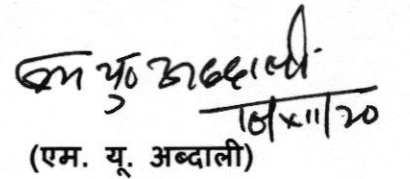 एम यु० अब्दाली
/XII/20
(एम. यू. अब्दाली)